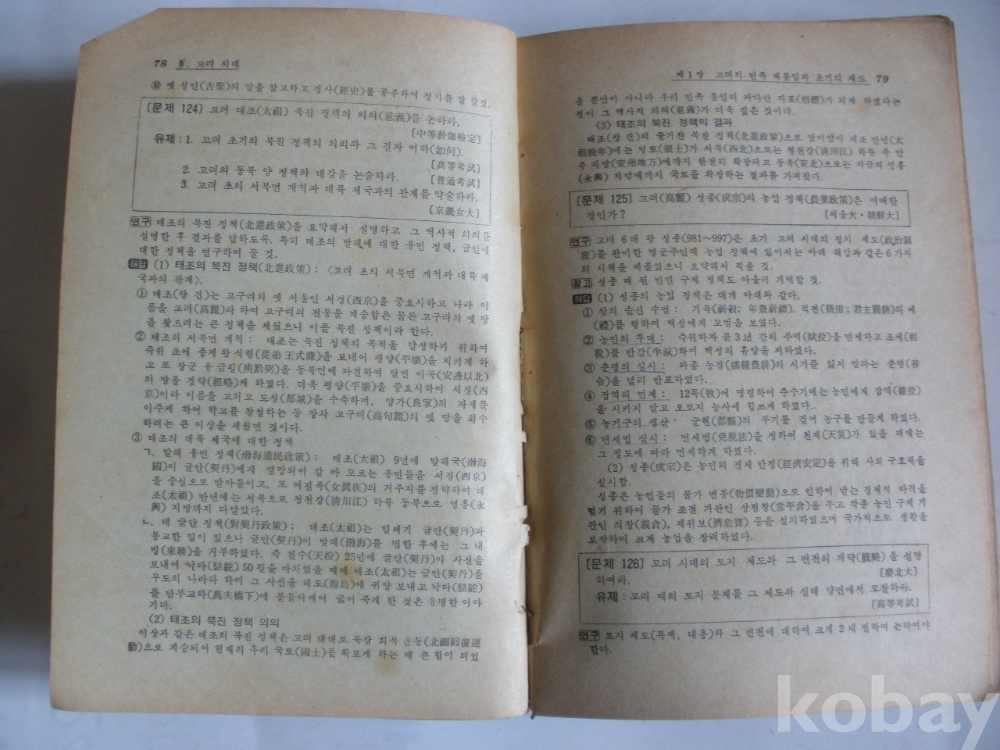 78 Ⅳ. 고려 시대
⑩ 옛 성인(古聖)의 말을 참고하고 경사(經史)를 공부하여 정치를 잘 할것.
[문제 124] 고려 태조(太祖) 북진 정책의 의의(意義)를 논하라.
[中等敎師檢定]
유제 : 1. 고려 초기의 북진 정책의 의의와 그 결과 여하(如何).
[高等考試]
2. 고려의 동북 양 정책의 대강을 논술하라.
[普通考試]
3. 고려 초의 서북면 개척과 대륙 제국과의 관계를 약술하라.
[京畿女大]
연구 태조의 북진 정책(北進政策)을 요약해서 설명하고 그 역사적 의의를
설명한 후 결과를 답하도록. 특히 태조의 발해에 대한 유민 정책, 글안에
대한 정책을 연구하여 둘 것.
해답 (1) 태조의 북진 정책(北進政策) : <고려 초의 서북면 개척과 대륙 제
국과의 관계>.
① 태조(왕 건)는 고구려의 옛 서울인 서경(西京)을 중요시하고 나라 이
름을 고려(高麗)라 하여 고구려의 전통을 계승함은 물론 고구려의 옛 땅
을 찾으려는 큰 정책을 세웠으니 이를 북진 정책이라 한다.
② 태조의 서북면 개척 : 태조는 북진 정책의 목적을 발생하기 위하여
즉위 초에 종제 왕 식렴(從弟 王式廉)을 보내어 평양(平壤)을 지키게 하
고 또 장군 유금필(庾黔弼)을 동북면에 파견하여 안변 이북(安邊以北)
의 땅을 경략(經略)케 하였다. 더욱 평양(平壤)을 중요시하여 서경(西
京)이라 이름을 고치고 도성(都城)을 수축하며, 양가(良家)의 자제를
이주케 하여 학교를 창설하는 등 장차 고구려(高句麗)의 옛 땅을 회수
하려는 큰 이상을 세웠던 것이다.
③ 태조의 대륙 제국에 대한 정책
ㄱ. 발해 유민 정책(渤海遺民政策) : 태조(太祖) 9년에 발해국(渤海
國)이 글안(契丹)에게 멸망되어 갈 바 모르는 유민들을 서경(西京)
을 중심으로 받아들이고, 또 여진족(女眞族)의 거주지를 경략하여 태
조(太祖) 만년에는 서북으로 청천강(淸川江) 하류 동북으로 영흥(永
興) 지방까지 다달았다.
ㄴ. 대 글안 정책(對契丹政策) : 태조(太祖)는 일찌기 글안(契丹)과
통교한 일이 있으나 글안(契丹)이 발해(渤海)를 멸한 후에는 그 내
빙(來聘)을 거부하였다. 즉 천수(天授) 25년에 글안(契丹)이 사신을
보내어 낙타(駱駝) 50필을 바치었을 때에 태조(太祖)는 글안(契丹)을
무도의 나라라 하며 그 사신을 해도(海島)에 귀양 보내고 낙타(駱駝)
를 만부교하(萬夫橋下)에 붙들어매어 굶어 죽게 한 것은 유명한 이야
기다.
(2) 태조의 북진 정책 의의
이상과 같은 태조의 북진 정책은 고려 대대로 북강 회복 운동(北疆回復運
動)으로 계승되어 현재의 우리 국토(國土)를 확보케 하는 데 큰 힘이 되었
제 1 장 고려의 민족 재통일과 초기의 제도 79
을 뿐만이 아니라 우리 민족 통일의 커다란 지표(指標)가 되게 하였다는
점이 그 역사적 의의(意義)가 더욱 깊은 것이다.
(3) 태조의 북진 정책의 결과
태조(왕 건)의 줄기찬 북진 정책(北進政策)으로 말미암아 태조 만년(太
祖晚年)에는 영토(領土)가 서북(西北)으로는 청천강(淸川江) 하류 즉 안
주 지방(安州地方)에까지 훨씬히 확장되고 동북(東北)으로는 지금의 영흥
(永興) 지방에까지 국토를 확장하는 결과를 가져왔다.
[문제 125] 고려(高麗) 성종(成宗)의 농업 정책(農業政策)은 어떠한
것인가? [세술大・朝鮮大]
연구 고려 6대 왕 성종(981~997)은 초기 고려 시대의 정치 제도(政治制
度)를 완비한 명군주인데 농업 정책에 있어서는 아래 해답과 같은 6가지
의 시책을 베풀었으니 요약해서 적을 것.
참고 성종 때 된 빈민 구제 정책도 아울러 기억할 것.
해답 (1) 성종의 농업 정책은 대개 아래와 같다.
① 왕의 솔선 수범 : 기곡(祈穀;年豊祈願), 적전(籍田;君主親耕)의 예
(禮)를 행하여 백성에게 모범을 보였다.
② 농민의 우대 : 즉위하자 곧 3년 간의 부역(賦役)을 면제하고 조세(租
稅)를 반감(半減)하여 백성의 휴양을 꾀하였다.
③ 춘령의 실시 : 파종 농경(播種農耕)의 시기를 잃지 말라는 춘령(春
令)을 널리 반포하였다.
④ 잡역의 면제 : 12목(牧)에 명령하여 춘수기에는 농민에게 잡역(雜役)
을 시키지 말고 오로지 농사에 힘쓰게 하였다.
⑤ 농기구의 생산 : 군현(郡縣)의 무기를 걷어 농구를 만들게 하였다.
⑥ 면세법 실시 : 면세법(免稅法)을 정하여 천재(天災)가 있을 때에는
그 정도에 따라 면세하게 하였다.
(2) 성종(成宗)은 농민의 경제 안정(經濟安定)을 위해 사회 구호책을
실시함.
성종은 농민들의 물가 변동(物價變動)으로 인하여 받는 경제적 타격을
덜기 위하여 물가 조절 기관인 상평창(常平倉)을 두고 각종 농민 구제 기
관인 의창(義倉), 제위보(濟危寶) 등을 설치하였으며 국가적으로 생활을
보장하여 크게 농업을 장려하였다.
[문제 126] 고려 시대의 토지 제도와 그 변천의 개략(槪略)을 설명
하여라. [慶北大]
유제 : 고려 때의 토지 문제를 그 제도와 실태 양면에서 고찰하라.
[高等考試]
연구 토지 제도(특색, 내용)와 그 변천에 대하여 크게 2대 별하여 논하여야
한다.
kobay